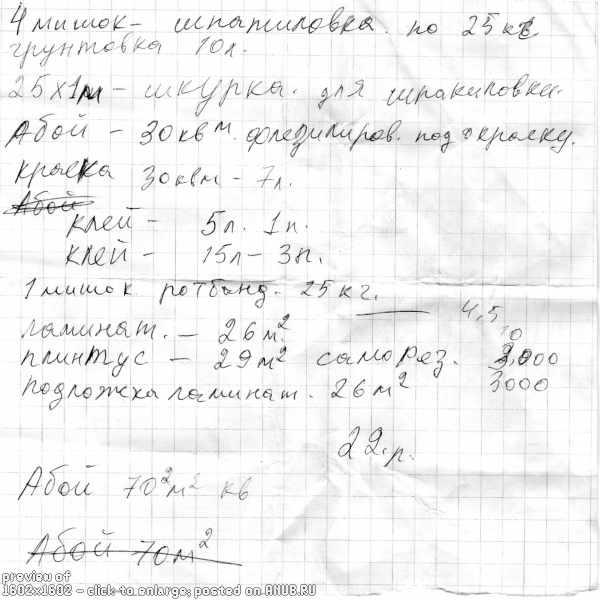 4 мишок - шпатиловка. по 25 кг
грунтовка 10 л.
25х1м - шкурка. для шпакиловки.
Абой - 30 кв м. флезилиров. под окраску.
краска 30 квм - 7 л.
Абой
клей - 5 л. 1 п.
клей - 15 л - 3 п.
1 мишок ротбанд. 25 кг.
4,5
ламинат. - 26 м²
10
плинтус - 29 м² саморез. 3,000
подложка ламинат. 26 м² 3000
22.р.
Абой 70² м² кв
Абой 70 м²
preview of
1602x1602 - click to enlarge; posted on ANUB.RU